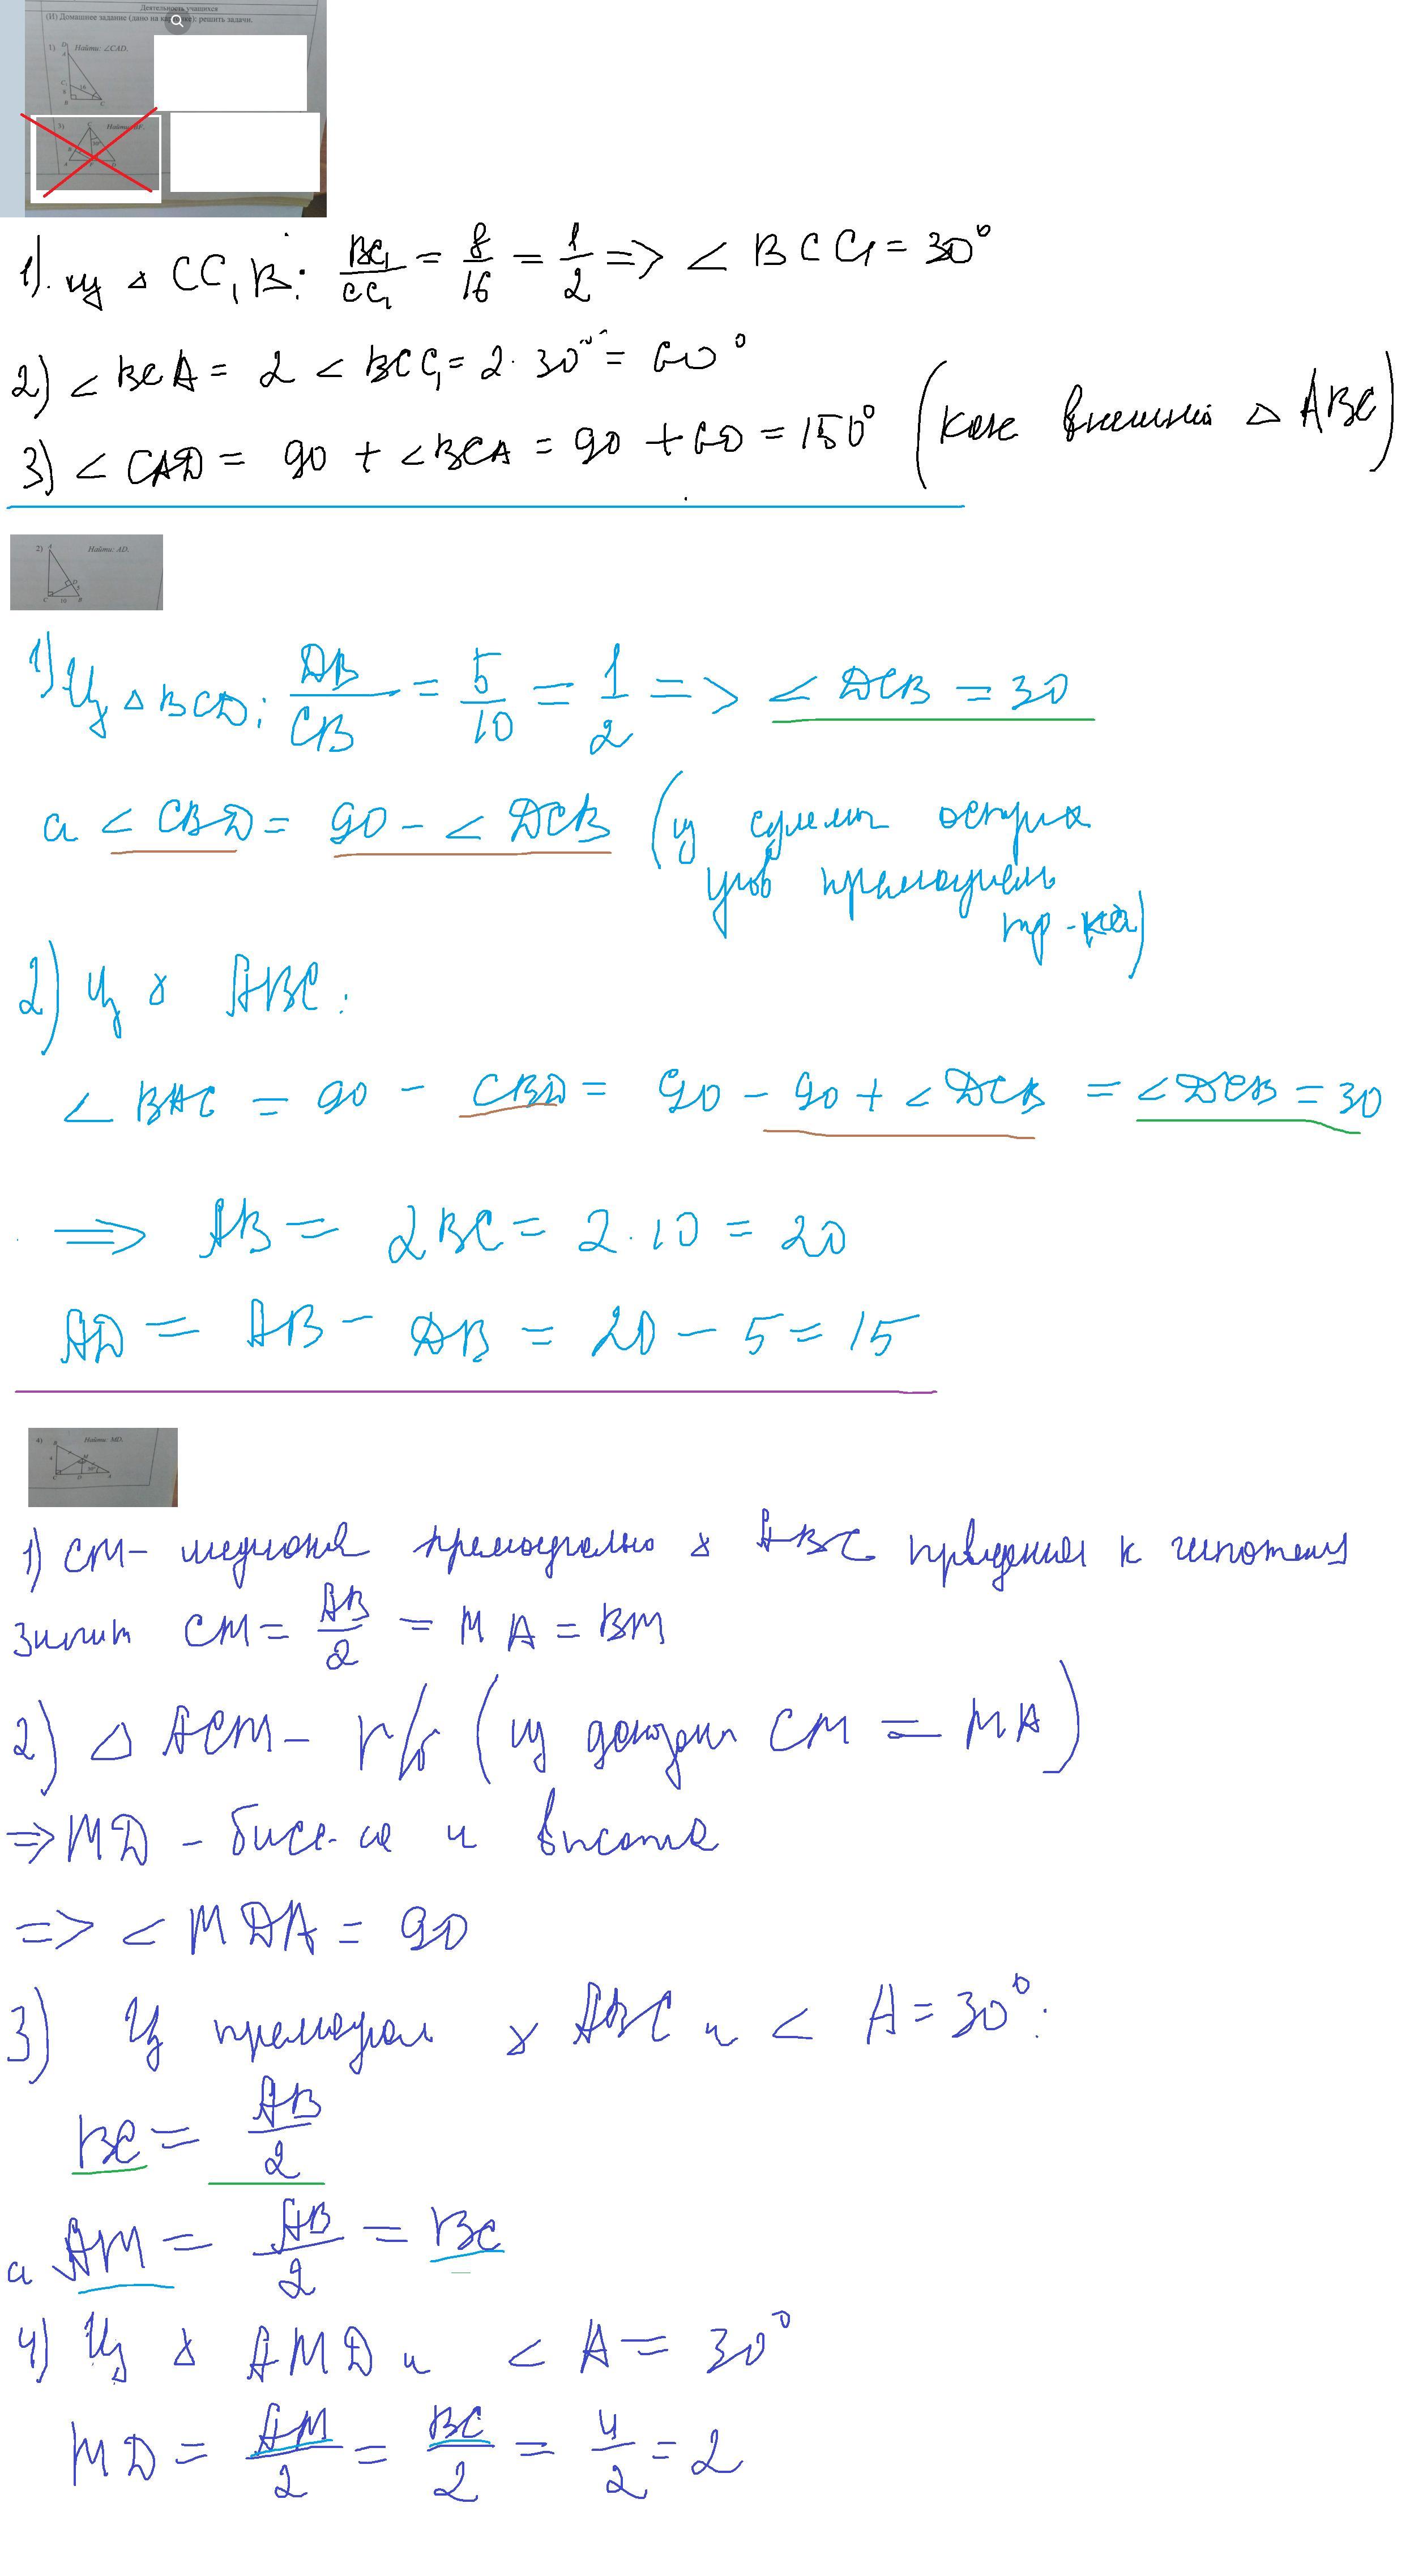 Деятельность учащихся
(И) Домашнее задание (дано на карточке): решить задачи.
1) Найти: ∠CAD.
D
A
C₁ 16
8
B C
3) Найти:
C
30°
B
A
1). из △ CC₁B: BC₁/CC₁ = 8/16 = 1/2 => ∠ BCC₁ = 30°
2) ∠ BCA = 2 ∠ BCC₁ = 2·30° = 60°
3) ∠ CAD = 90 + ∠BCA = 90 + 60 = 150° (как внешний △ ABC)
2) A Найти: AD.
D
5
C 10 B
1) Из △ BCD: DB/CB = 5/10 = 1/2 => ∠ DCB = 30
а ∠ CBD = 90 - ∠ DCB (из суммы острых
углов прямоугольн
тр-ка)
2) Из △ ABC:
∠ BAC = 90 - CBD = 90 - 90 + ∠ DCB = ∠DCB = 30
=> AB = 2BC = 2·10 = 20
AD = AB - DB = 20 - 5 = 15
4) B Найти: MD.
4 M
30°
C D A
1) CM - медиана прямоугольно △ ABC проведенная к гипотенуз
значит CM = AB/2 = MA = BM
2) △ ACM - р/б (из доказан CM = MA)
=> MD - бисс-са и высота
=> ∠ MDA = 90
3) Из прямоугол △ ABC и ∠ A = 30°:
BC = AB/2
а AM = AB/2 = BC
4) Из △ AMD и ∠ A = 30°
MD = AM/2 = BC/2 = 4/2 = 2